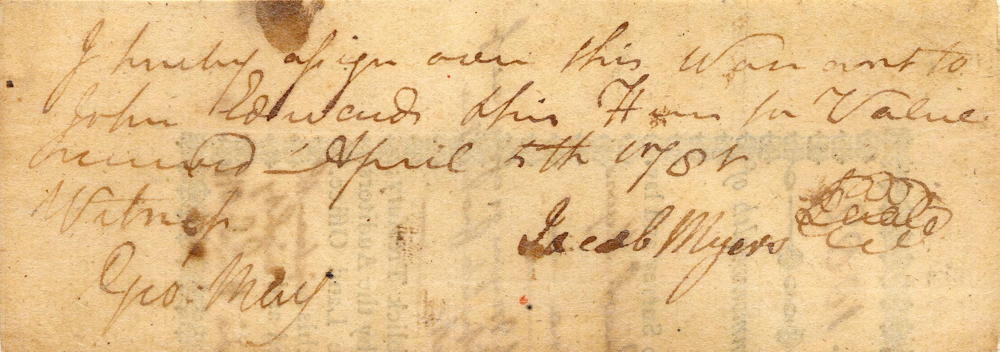 I hereby assign over this Warrant to
John Edwards this Hour for Value
received April 5th 1781
Witness
Jacob Myers Seale
Geo: May